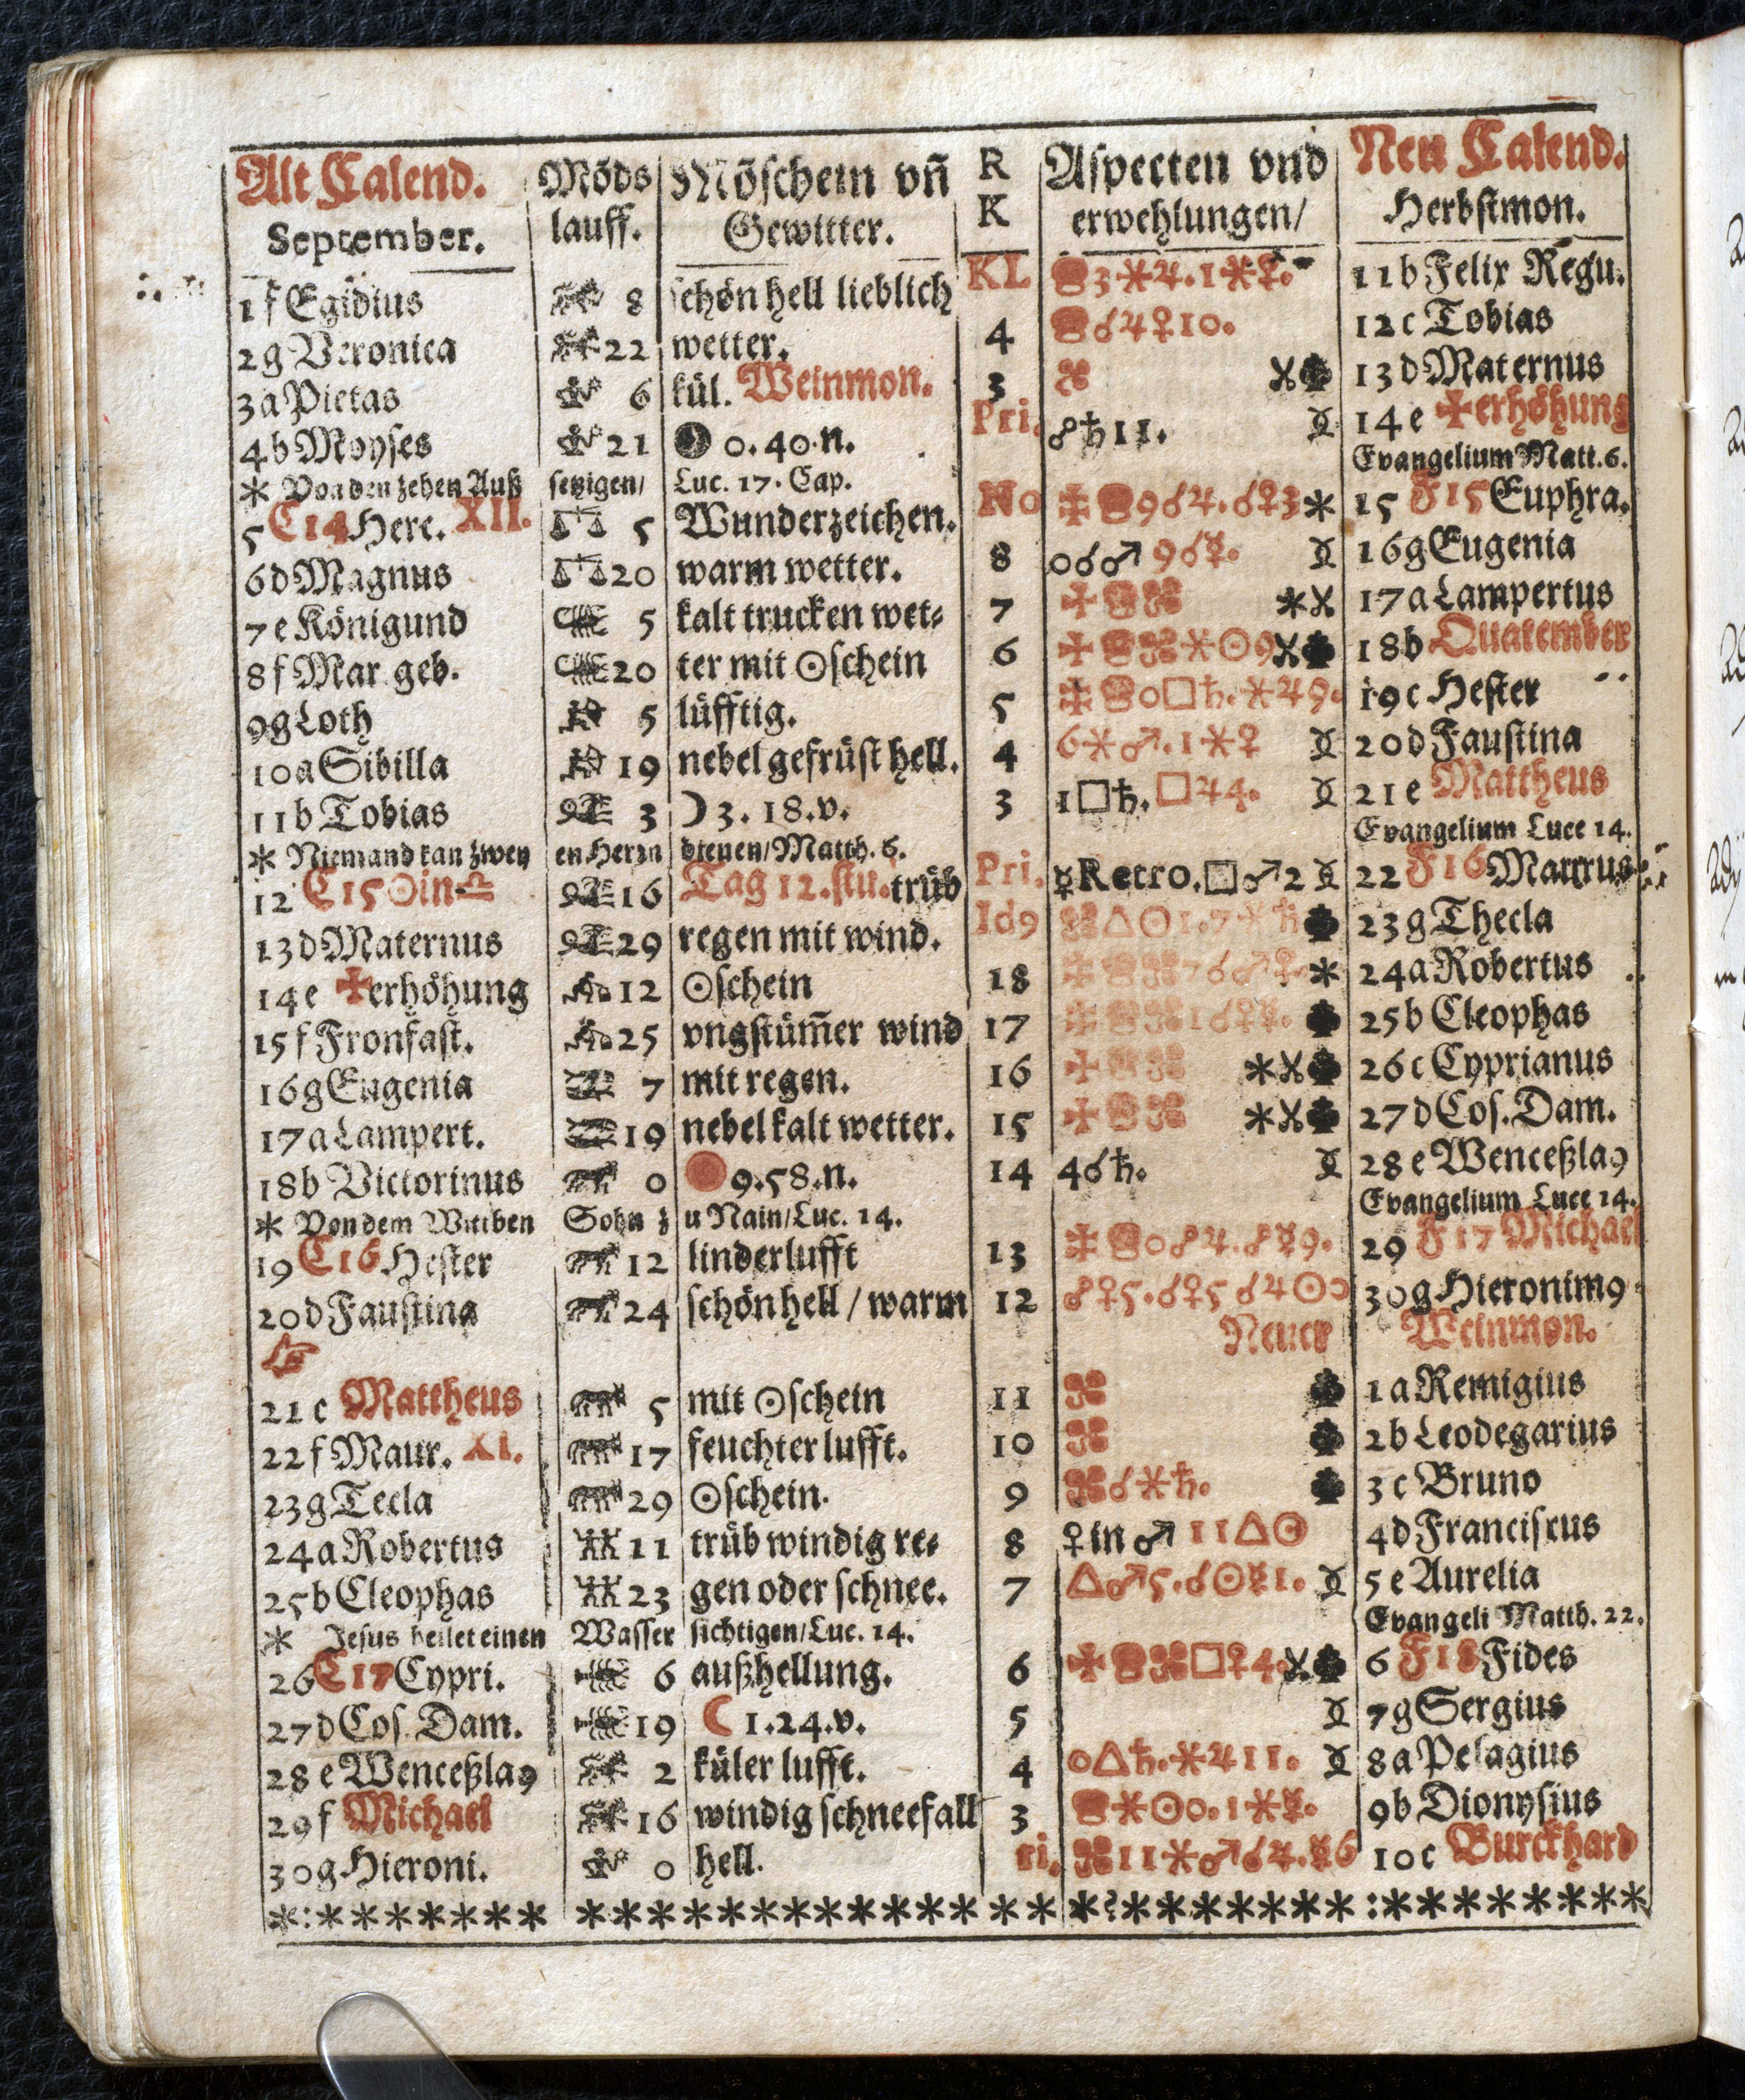 Alt Calend. Mõds Mõschein vñ R Aspecten vnd Neu Calend.
September. lauff. Gewitter. K erwehlungen/ Herbstmon.
1 f Egidius 8 schön hell lieblich KL 3 ⚹ ♃. 1 ⚹ ♀. 11 b Felix Regu.
2 g Veronica 22 wetter. 4 ☌ ♃ ♀ 10. 12 c Tobias
3 a Pietas 6 kül. Weinmon. 3 13 d Maternus
4 b Moyses 21 0. 40. n. Pri. ☍ ♄ 11. 14 e ✠ erhöhung
Evangelium Matt. 6.
* Von den zehen Außsetzigen/ Luc. 17. Cap.
5 C14 Herc. XII. ♎ 5 Wunderzeichen. No ✠ 9 ☌ ♃. ☌ ♀ 3 * 15 F15 Euphra.
6 d Magnus ♎ 20 warm wetter. 8 0 ☌ ♂ 9 ☌ ☿. 16 g Eugenia
7 e Königund 5 kalt trucken wet⸗ 7 ✠ * 17 a Lampertus
8 f Mar. geb. 20 ter mit ☉schein 6 ✠ ⚹ ☉ 9 18 b Quatember
9 g Loth 5 lüfftig. 5 ✠ 0 □ ♄. ⚹ ♃ 9. 19 c Hester
10 a Sibilla 19 nebel gefrüst hell. 4 6 ⚹ ♂. 1 ⚹ ♀ 20 d Faustina
11 b Tobias 3 ☽ 3. 18. v. 3 1 □ ♄. □ ♃ 4. 21 e Mattheus
Evangelium Luce 14.
* Niemand kan zweyen Herzn dienen/ Matth. 6.
12 C15 ☉ in ♎ 16 Tag 12. stu. trüb Pri. ☿ Retro. □ ♂ 2 22 F16 Maurus
13 d Maternus 29 regen mit wind. Id9 △ ☉ 1. 7 ⚹ ♄ 23 g Thecla
14 e ✠ erhöhung 12 ☉schein 18 ✠ 7 ☌ ♂ ♀ * 24 a Robertus
15 f Fronfast. 25 vngstüm̃er wind 17 ✠ 1 ☌ ♀ ☿. 25 b Cleophas
16 g Eugenia 7 mit regen. 16 ✠ * 26 c Cyprianus
17 a Lampert. 19 nebel kalt wetter. 15 ✠ * 27 d Cos. Dam.
18 b Victorinus 0 9. 58. n. 14 4 ☌ ♄. 28 e Wenceßla9
Evangelium Luce 14.
* Von dem Wittben Sohn zu Nain/ Luc. 14.
19 C16 Hester 12 linder lufft 13 ✠ 0 ☍ ♃. ☍ ☿ 9. 29 F17 Michael
20 d Faustina 24 schön hell / warm 12 ☍ ♀ 5. ☌ ♀ 5 ☌ ♃ ☉ 30 g Hieronim9
☞ Neuer Weinmon.
21 e Mattheus 5 mit ☉schein 11 1 a Remigius
22 f Maur. XI. 17 feuchter lufft. 10 2 b Leodegarius
23 g Tecla 29 ☉schein. 9 ☌ ⚹ ♄. 3 c Bruno
24 a Robertus 11 trüb windig re⸗ 8 ♀ in ♂ 11 △ ☉ 4 d Franciscus
25 b Cleophas 23 gen oder schnee. 7 △ ♂ 5. ☌ ☉ ☿ 1. 5 e Aurelia
Evangeli Matth. 22.
* Jesus heilet einen Wassersichtigen/ Luc. 14.
26 C17 Cypri. 6 außhellung. 6 ✠ □ ♀ 4. 6 F18 Fides
27 d Cos. Dam. 19 ☾ 1. 24. v. 5 7 g Sergius
28 e Wenceßla9 2 küler lufft. 4 0 △ ♄. ⚹ ♃ 11. 8 a Pelagius
29 f Michael 16 windig schneefall 3 ⚹ ☉ 0. 1 ⚹ ☿. 9 b Dionysius
30 g Hieroni. 0 hell. ri. 11 ⚹ ♂ ☌ ♃. ☿ 6 10 c Burckhard